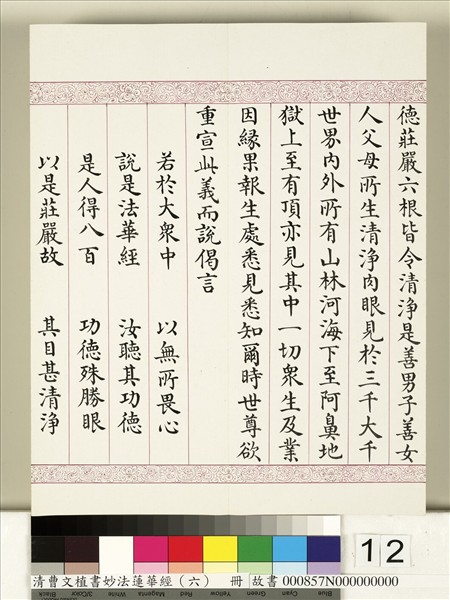 德莊嚴六根皆令清淨是善男子善女
人父母所生清淨肉眼見於三千大千
世界內外所有山林河海下至阿鼻地
獄上至有頂亦見其中一切眾生及業
因緣果報生處悉見悉知爾時世尊欲
重宣此義而說偈言
若於大眾中 以無所畏心
說是法華經 汝聽其功德
是人得八百 功德殊勝眼
以是莊嚴故 其目甚清淨
12
清曹文植書妙法蓮華經(六) 冊 故書 000857N000000000
Black 3/Color White Magenta Red Yellow Green Cyan Blue